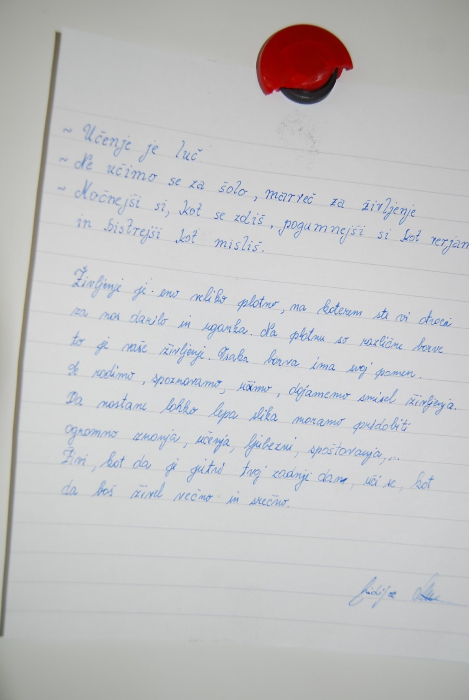 ~ Učenje je luč
~ Ne učimo se za šolo, marveč za življenje
~ Močnejši si, kot se zdiš, pogumnejši si kot verjam
in bistrejši kot misliš.
Življenje je eno veliko platno, na katerem ste vi otroci
za nas darilo in uganka. Na platnu so različne barve
to je vaše življenje. Vsaka barva ima svoj pomen.
Se rodimo, spoznavamo, učimo, dojamemo smisel življenja.
Da nastane lahko lepa slika moramo pridobiti
ogromno znanja, učenja, ljubezni, spoštovanja,...
Živi, kot da je jutri tvoj zadnji dan, uči se, kot
da boš živel večno in srečno.